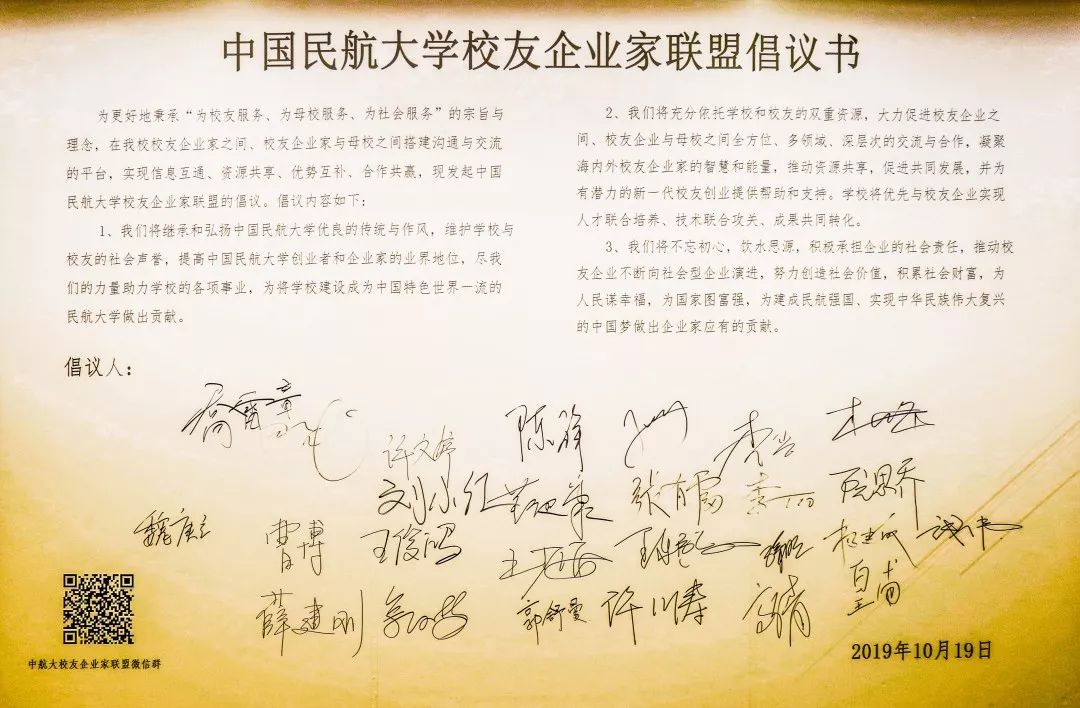 中国民航大学校友企业家联盟倡议书
为更好地秉承“为校友服务、为母校服务、为社会服务”的宗旨与
理念，在我校校友企业家之间、校友企业家与母校之间搭建沟通与交流
的平台，实现信息互通、资源共享、优势互补、合作共赢，现发起中国
民航大学校友企业家联盟的倡议。倡议内容如下：
1、我们将继承和弘扬中国民航大学优良的传统与作风，维护学校与
校友的社会声誉，提高中国民航大学创业者和企业家的业界地位，尽我
们的力量助力学校的各项事业，为将学校建设成为中国特色世界一流的
民航大学做出贡献。
2、我们将充分依托学校和校友的双重资源，大力促进校友企业之
间、校友企业与母校之间全方位、多领域、深层次的交流与合作，凝聚
海内外校友企业家的智慧和能量，推动资源共享，促进共同发展，并为
有潜力的新一代校友创业提供帮助和支持。学校将优先与校友企业实现
人才联合培养、技术联合攻关、成果共同转化。
3、我们将不忘初心，饮水思源，积极承担企业的社会责任，推动校
友企业不断向社会型企业演进，努力创造社会价值，积累社会财富，为
人民谋幸福，为国家图富强，为建成民航强国、实现中华民族伟大复兴
的中国梦做出企业家应有的贡献。
倡议人：
许文婷
刘小红
曹博
王俊鸿
薛建刚
郭舒曼
许川涛
中航大校友企业家联盟微信群
2019年10月19日